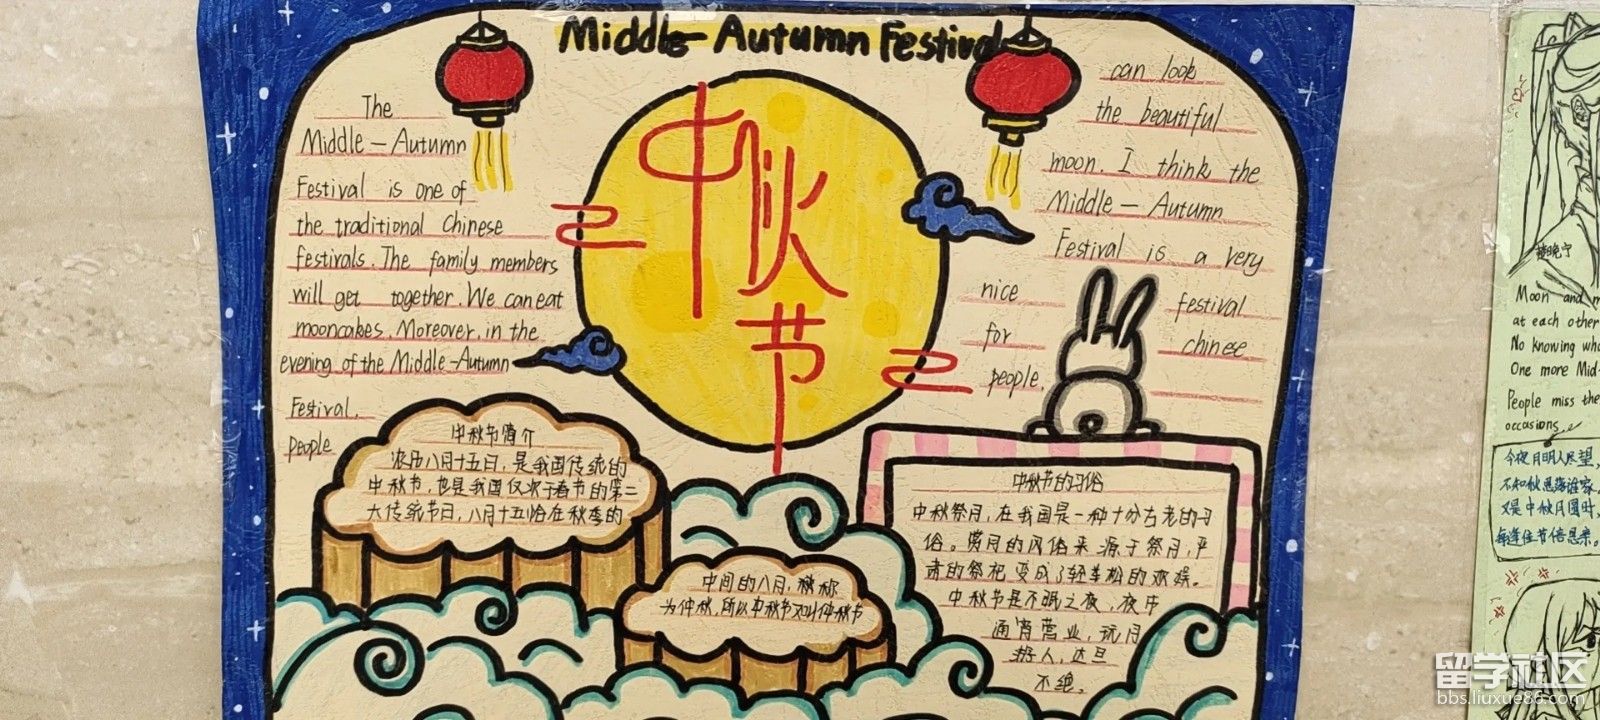 Middle-Autumn Festival
中秋节
The
Middle-Autumn
Festival is one of
the traditional Chinese
festivals. The family members
will get together. We can eat
mooncakes. Moreover, in the
evening of the Middle-Autumn
Festival.
people
can look
the beautiful
moon. I think the
Middle-Autumn
Festival is a very
nice festival
for chinese
people.
中秋节简介
农历八月十五日,是我国传统的
中秋节,也是我国仅次于春节的第二
大传统节日,八月十五恰在秋季的
中间的八月,秋称
为仲秋,所以中秋节又叫仲秋节
中秋节的习俗
中秋祭月,在我国是一种十分古老的习
俗。赏月的风俗来源于祭月,严
肃的祭祀变成了轻松的欢娱。
中秋节是不眠之夜,夜市
通宵营业,玩月
游人,达旦
不绝。
楚晚宁
Moon and m
at each other
No knowing who
One more Mid-
People miss the
occasions.
今夜月明人尽望,
不知秋思落谁家。
又是中秋月圆时,
每逢佳节倍思亲。
留学社区
bbs.liuxue86.com